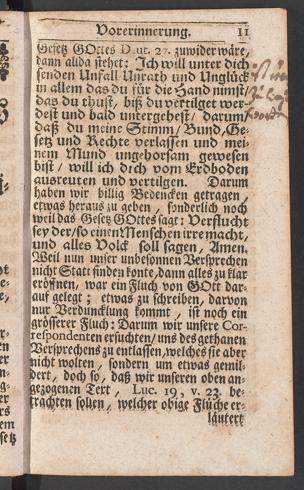 Vorerinnerung. 11
Gesetz GOttes Deut. 27. zuwider wäre,
dann allda stehet: Ich will unter dich
senden Unfall Unrath und Unglück
in allem das du für die Hand nimst/
das du thust, biß du vertilget wer-
dest und bald untergehest/ darum
daß du meine Stimm/ Bund, Ge-
setz und Rechte verlassen und mei-
nem Mund ungehorsam gewesen
bist/ will ich dich vom Erdboden
ausreuten und vertilgen. Darum
haben wir billig Bedencken getragen,
etwas heraus zu geben, sonderlich noch
weil das Gesetz GOttes sagt: Verflucht
sey der/ so einen Menschen irre macht,
und alles Volck soll sagen, Amen.
Weil nun unser unbesonnen Versprechen
nicht Statt finden konte, dann alles zu klar
eröffnen, war ein Fluch von GOtt dar-
auf gelegt; etwas zu schreiben, darvon
nur Verduncklung kommt, ist noch ein
grösserer Fluch: Darum wir unsere Cor-
respondenten ersuchten/ uns des gethanen
Versprechens zu entlassen, welches sie aber
nicht wolten, sondern um etwas gemil-
dert, doch so, daß wir unseren oben an-
gezogenen Text, Luc. 19, v. 23. be-
trachten sollen, welcher obige Flüche er-
läutert